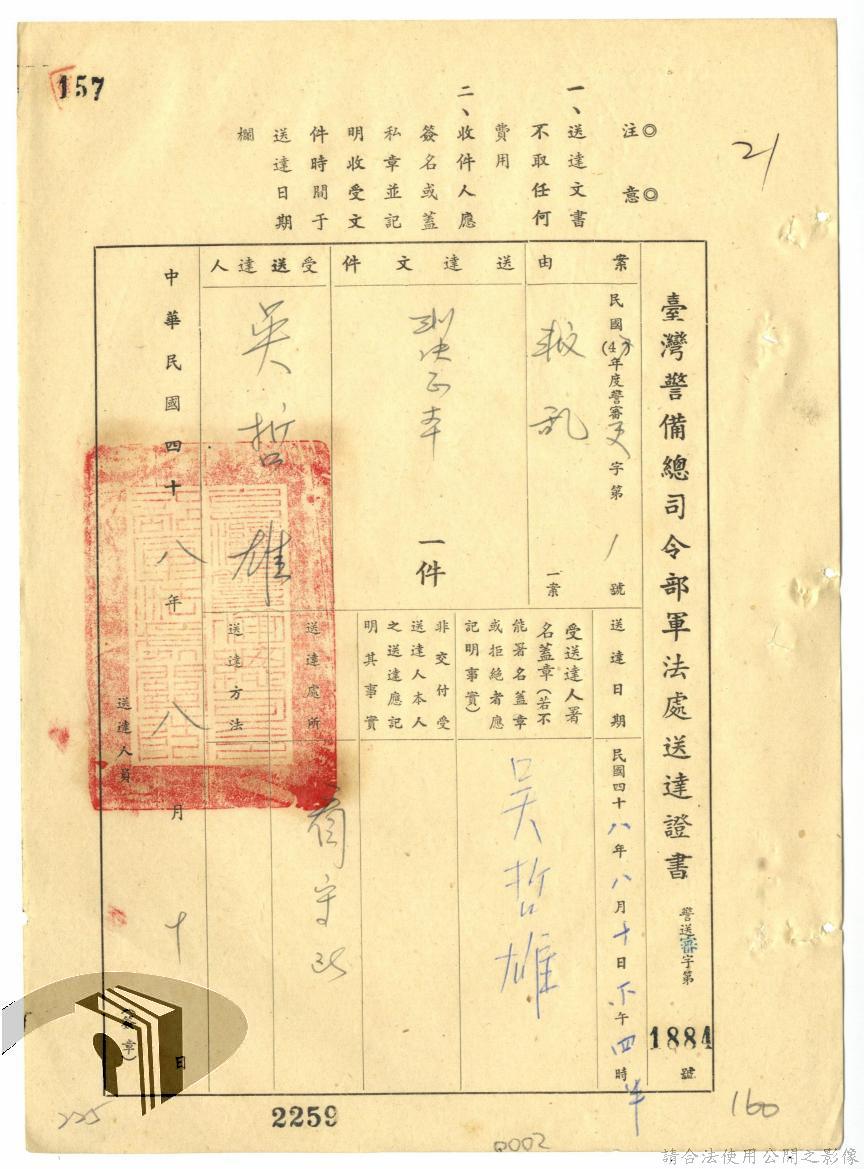 157
21
◎注意◎
一、送達文書
不取任何
費用
二、收件人應
簽名或蓋
私章並記
明收受文
件時間于
送達日期
欄
臺灣警備總司令部軍法處送達證書
警送審字第
1884
號
案由
民國(4)年度警審字第1號
叛乱
一案
送達文件
判決正本
一件
受送達人
吳哲雄
送達日期
民國四十八年八月十日下午四時半
受送達人署
名蓋章(若不
能署名蓋章
或拒絕者應
記明事實)
吴哲雄
非交付受
送達人本人
之送達應記
明其事實
送達處所
守所
送達方法
中華民國四十八年八月十日
送達人員
(簽章)
225
2259
0002
160
請合法使用公開之影像